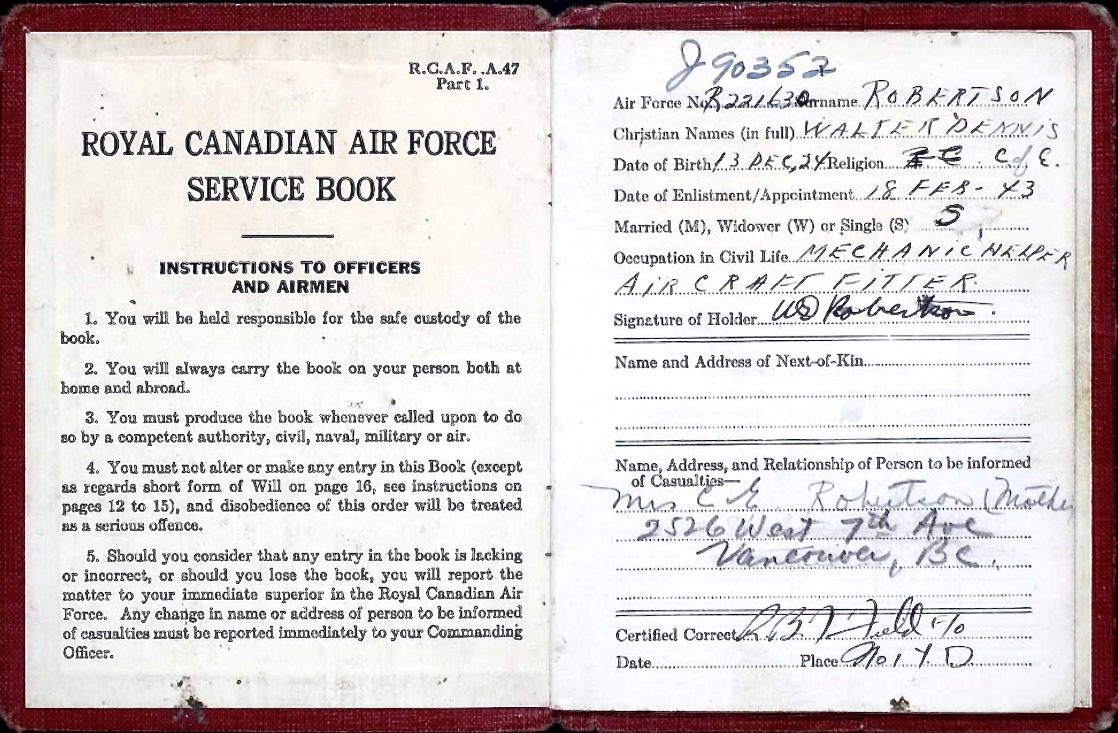 R.C.A.F. A.47
Part 1.
ROYAL CANADIAN AIR FORCE
SERVICE BOOK
INSTRUCTIONS TO OFFICERS
AND AIRMEN
1. You will be held responsible for the safe custody of the
book.
2. You will always carry the book on your person both at
home and abroad.
3. You must produce the book whenever called upon to do
so by a competent authority, civil, naval, military or air.
4. You must not alter or make any entry in this Book (except
as regards short form of Will on page 16, see instructions on
pages 12 to 15), and disobedience of this order will be treated
as a serious offence.
5. Should you consider that any entry in the book is lacking
or incorrect, or should you lose the book, you will report the
matter to your immediate superior in the Royal Canadian Air
Force. Any change in name or address of person to be informed
of casualties must be reported immediately to your Commanding
Officer.
J90352
Air Force No. R221630 Surname ROBERTSON
Christian Names (in full) WALTER DENNIS
Date of Birth 13 DEC, 24 Religion C of E.
Date of Enlistment/Appointment 18 FEB - 43
Married (M), Widower (W) or Single (S) S
Occupation in Civil Life MECHANIC HELPER
AIRCRAFT FITTER.
Signature of Holder WD Robertson.
Name and Address of Next-of-Kin
Name, Address, and Relationship of Person to be informed
of Casualties—
Mrs C E Robertson (Mother
2526 West 7th Ave
Vancouver, BC.
Certified Correct Field F/O
Date Place No. 1 Y D